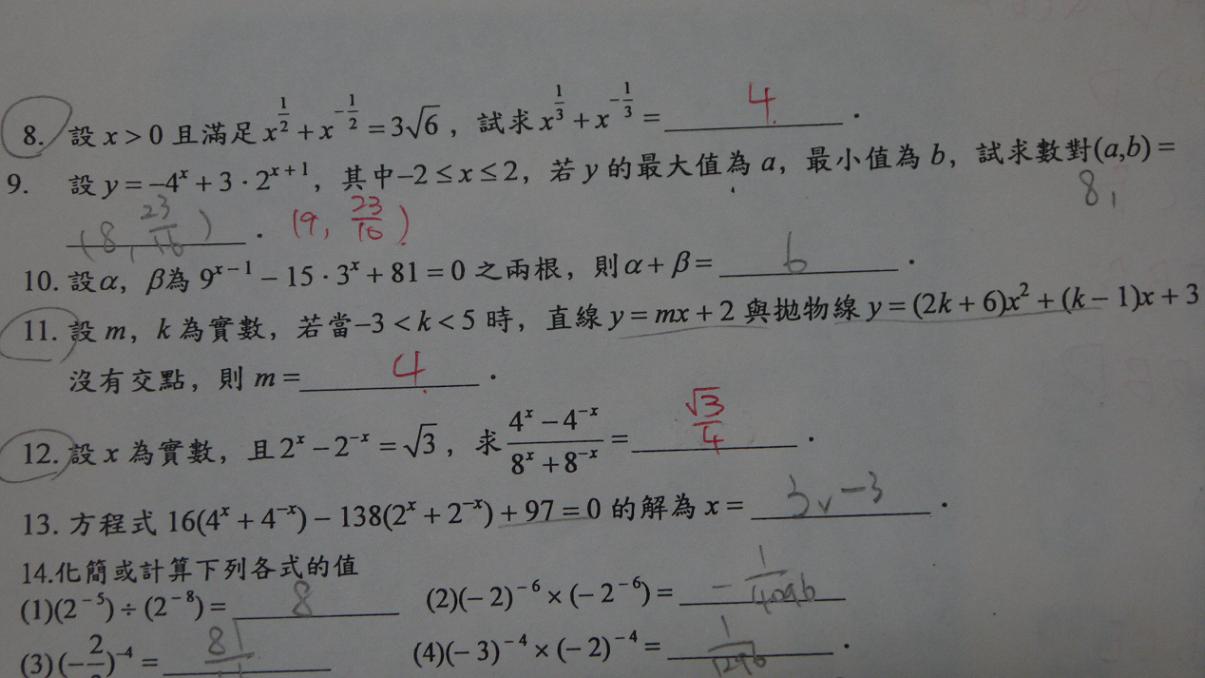 8. 設 x > 0 且滿足 x^{1/2} + x^{-1/2} = 3√6，試求 x^{1/3} + x^{-1/3} = 4.
9. 設 y = -4^x + 3 · 2^{x+1}，其中 -2 ≤ x ≤ 2，若 y 的最大值為 a，最小值為 b，試求數對(a,b) =
8,
(8, 23/16). (9, 23/16)
10. 設α，β為 9^{x-1} - 15 · 3^x + 81 = 0 之兩根，則 α + β = 6.
11. 設 m，k 為實數，若當 -3 < k < 5 時，直線 y = mx + 2 與拋物線 y = (2k + 6)x² + (k - 1)x + 3
沒有交點，則 m = 4.
12. 設 x 為實數，且 2^x - 2^{-x} = √3，求 (4^x - 4^{-x})/(8^x + 8^{-x}) = √3/4.
13. 方程式 16(4^x + 4^{-x}) - 138(2^x + 2^{-x}) + 97 = 0 的解為 x = 3, -3.
14.化簡或計算下列各式的值
(1)(2^{-5}) ÷ (2^{-8}) = 8 (2)(-2)^{-6} × (-2^{-6}) = -1/4096
(3)(-2/)^{-4} = 81/ (4)(-3)^{-4} × (-2)^{-4} = 1/1296.